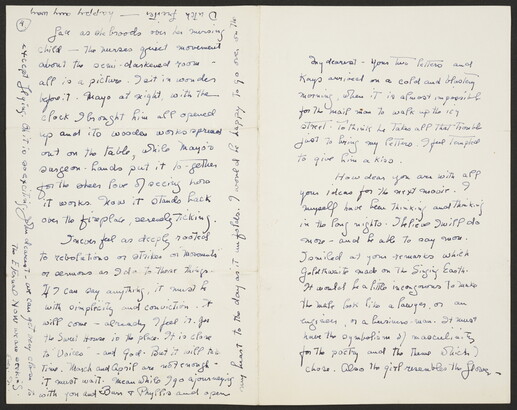 My dearest - Your two letters and
Kays arrived on a cold and blustery
morning, when it is almost impossible
for the mail man to walk up the icy
street. To think he takes all that trouble
just to bring my letters. I feel tempted
to give him a kiss.
How dear you are with all
your ideas for the next movie. I
myself have been thinking and thinking
in the long nights. I believe I will do
more - and be able to say more.
I smiled at your remarks which
Goldthwaite made on the Singing Earth.
It would be a little incongruous to make
the male look like a lawyer, or an
engineer, or a business-man. It must
have the symbolism of masculinity
for the poetry and the theme which I
chose. Also the girl resembles the
4
face as she broods over her nursing
child - the nurses quiet movement
about the semi-darkened room -
all is a picture. I sit in wonder
before it. Mayo at night, with the
clock I brought him all opened
up and its wooden works spread
out on the table, while Mayo's
surgeon-hands put it to-gether
for the sheer love of seeing how
it works. Now it stands back
over the fireplace, serenely ticking.
I never feel as deeply rooted
to revolutions or strikes or
or sermons as I do to these things.
If I can say anything, it must be
with simplicity and conviction. it
will come - already I feel it. for
the Sweet House is the place. It is close
to "Voices" - and God. But it will take
time. March and April are not enough -
it must wait. Mean while I go a journeying
with you and Dave & Phyllis and open
my heart to the day as it unfolds. I would be happy to go on, on the
Dutch freighter - happy
except flying
The Eternal Now